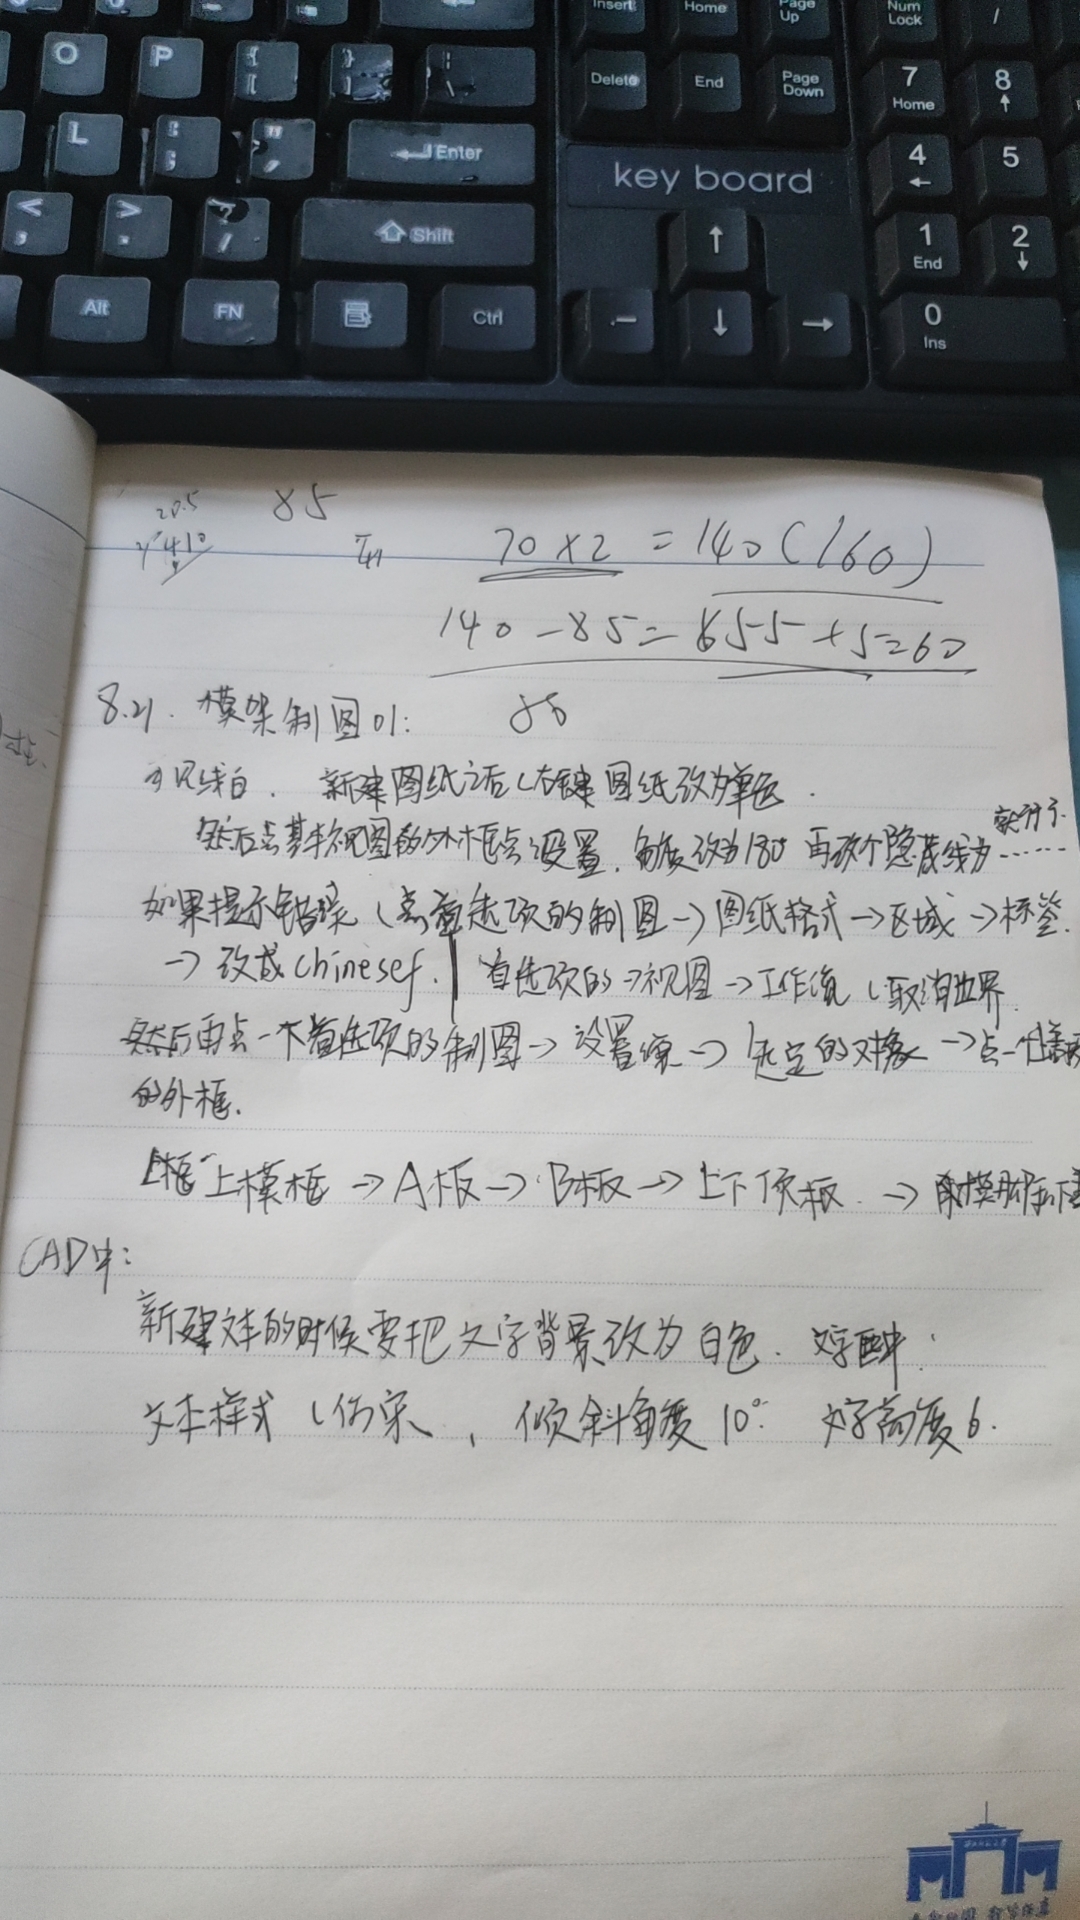 O P { [ } ] | \
Insert Home Page Up Num Lock /
Delete End Page Down 7 Home 8
L : ; " ' Enter
key board 4 5
< , > . ? / Shift 1 End 2
Alt FN Ctrl 0 Ins
20.5 85
410 70×2=140(160)
140-85=655+5=60
8.21. 模架制图01: 85
可见线白. 新建图纸之后(右键图纸改为单色.
然后点基本视图的外框点设置, 角度改为180 再改个隐藏线为……
如果提示错误(点首选项的制图→图纸格式→区域→标签.
→改成chinesef. 首选项的→视图→工作流(取消边界
然后再点一下首选项的制图→设置 →选定的对象→点一个
的外框.
上模框→A板→B板→上下顶板→
CAD中:
新建文本的时候要把文字背景改为白色. 文字 中.
文本样式(仿宋, 倾斜角度10°. 文字高度6.